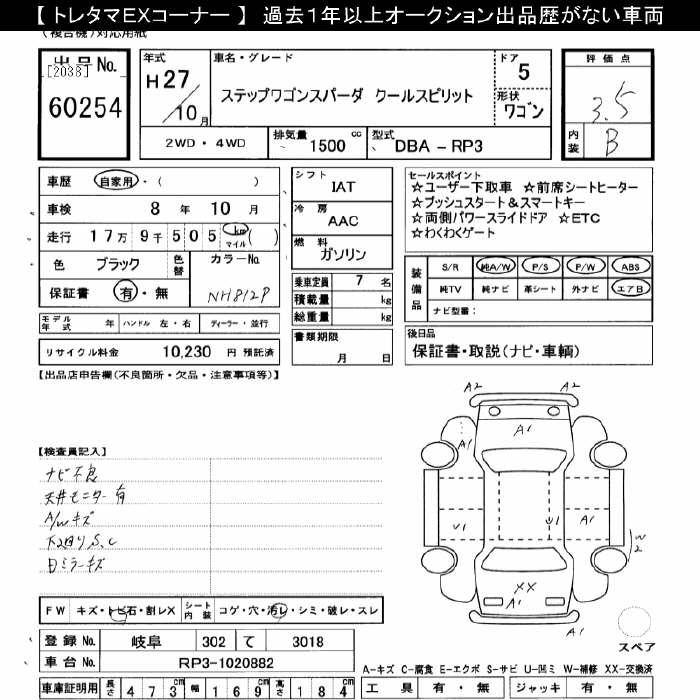 【 トレタマEXコーナー 】 過去1年以上オークション出品歴がない車両
(複合機)対応用紙
出品No.
[2038]
60254
年式
H27/10月
車名・グレード
ステップワゴンスパーダ クールスピリット
ドア
5
形状
ワゴン
評価点
3.5
内装
B
2WD・4WD
排気量 1500 cc
型式 DBA-RP3
車歴 自家用・( )
車検 8年10月
走行 17万9千505 km マイル ( )
色 ブラック 色替 カラーNo.
保証書 有・無 NH812P
モデル年式 年 ハンドル 左・右 ディーラー・並行
リサイクル料金 10,230 円 預託済
シフト
IAT
冷房
AAC
燃料
ガソリン
乗車定員 7 名
積載量 kg
総重量 kg
書類期限
月 日
セールスポイント
☆ユーザー下取車 ☆前席シートヒーター
☆プッシュスタート&スマートキー
☆両側パワースライドドア ☆ETC
☆わくわくゲート
装備品
S/R 純A/W P/S P/W ABS
純TV 純ナビ 革シート 外ナビ エアB
ナビ型番:
後日品
保証書・取説(ナビ・車輌)
【出品店申告欄(不良箇所・欠品・注意事項等)】
【検査員記入】
ナビ不良
天井モニター有
A/Wキズ
下廻りS、C
日ミラーキズ
A2 A2
A1
A1
U1 U1 A1
W2
XX
A1 A1
スペア
FW キズ・トビ石・割レX シート内装 コゲ・穴・汚レ・シミ・破レ・スレ
登録No. 岐阜 302 て 3018
車台No. RP3-1020882
車庫証明用 長さ 473cm 幅 169cm 高さ 184cm
A-キズ C-腐食 E-エクボ S-サビ U-凹ミ W-補修 XX-交換済
工具 有・無 ジャッキ 有・無